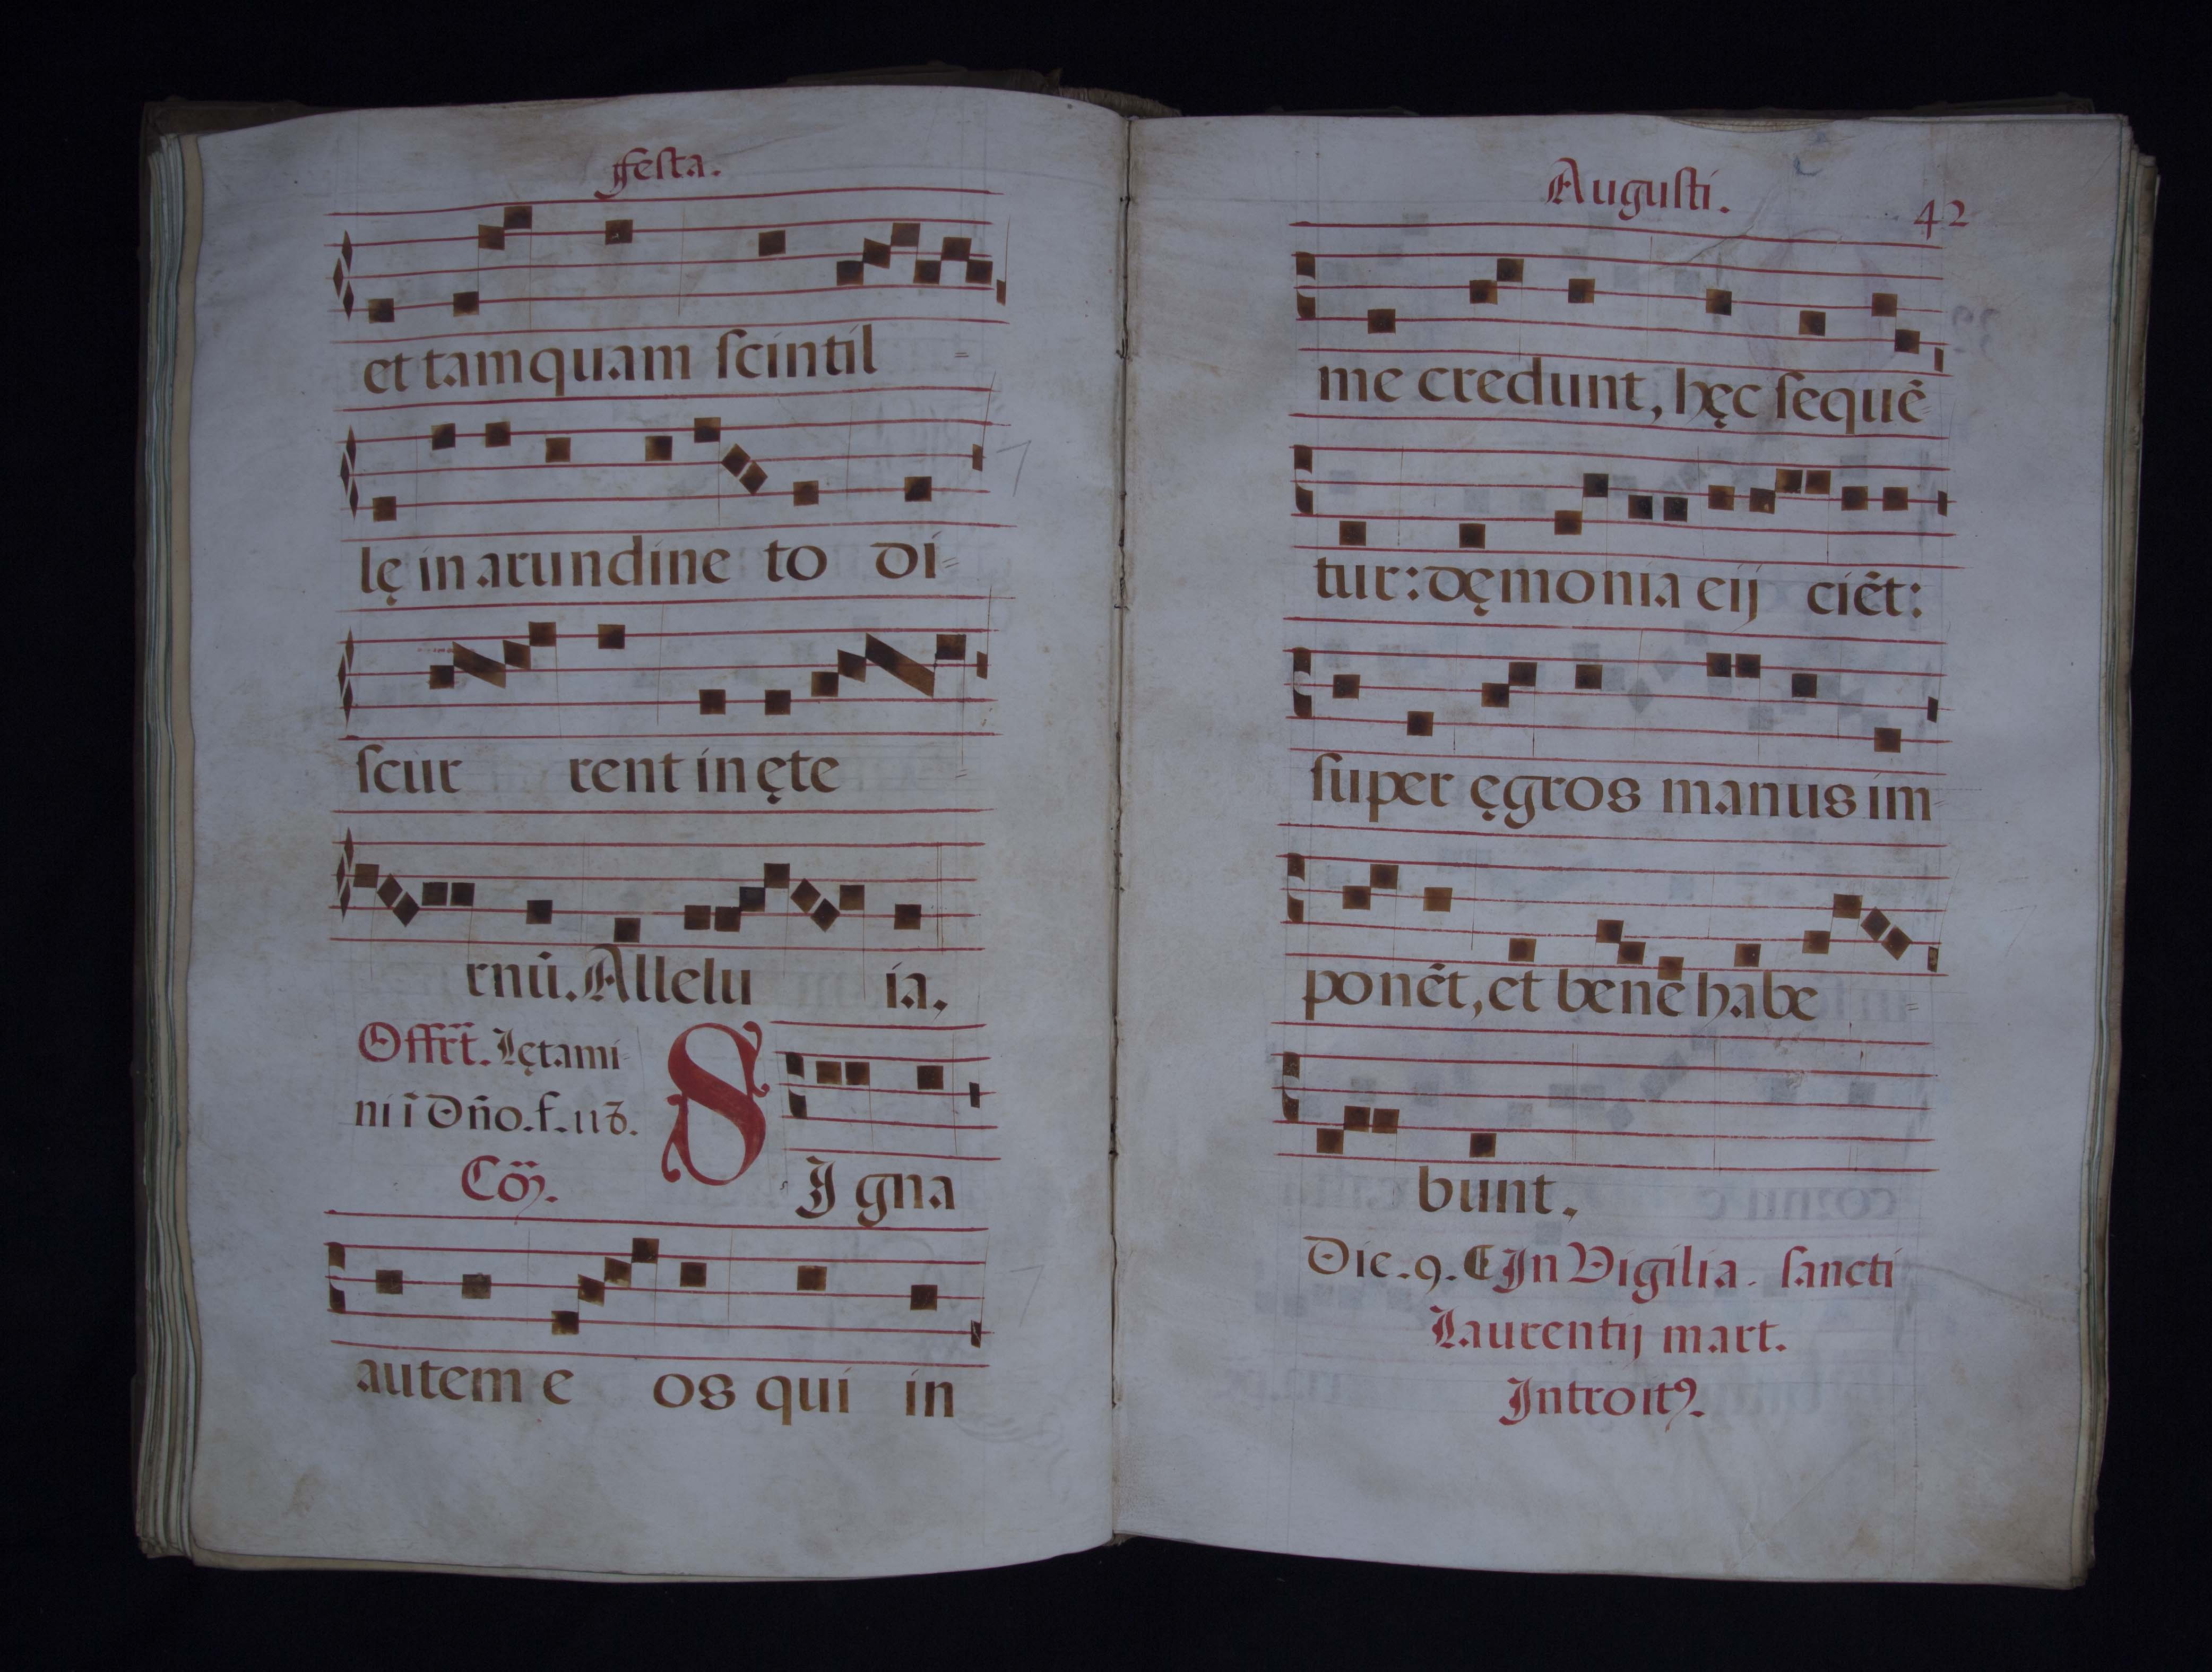 festa.
et tamquam ſcintil=
lę in arundine to di=
ſcur rent in ęte=
rnū. Allelu ia,
Offrt̄. Lętami-
ni ī Dño. f. 118.
Cō.
S J gna
autem e os qui in
Auguſti.
42
me credunt, hęc ſequē=
tur: dęmonia eij ciēt:
ſuper ęgros manus im-
ponēt, et bene habe=
bunt.
Die. 9. ¶ Jn Vigilia. ſancti
Laurentij mart.
Jntroitꝰ.